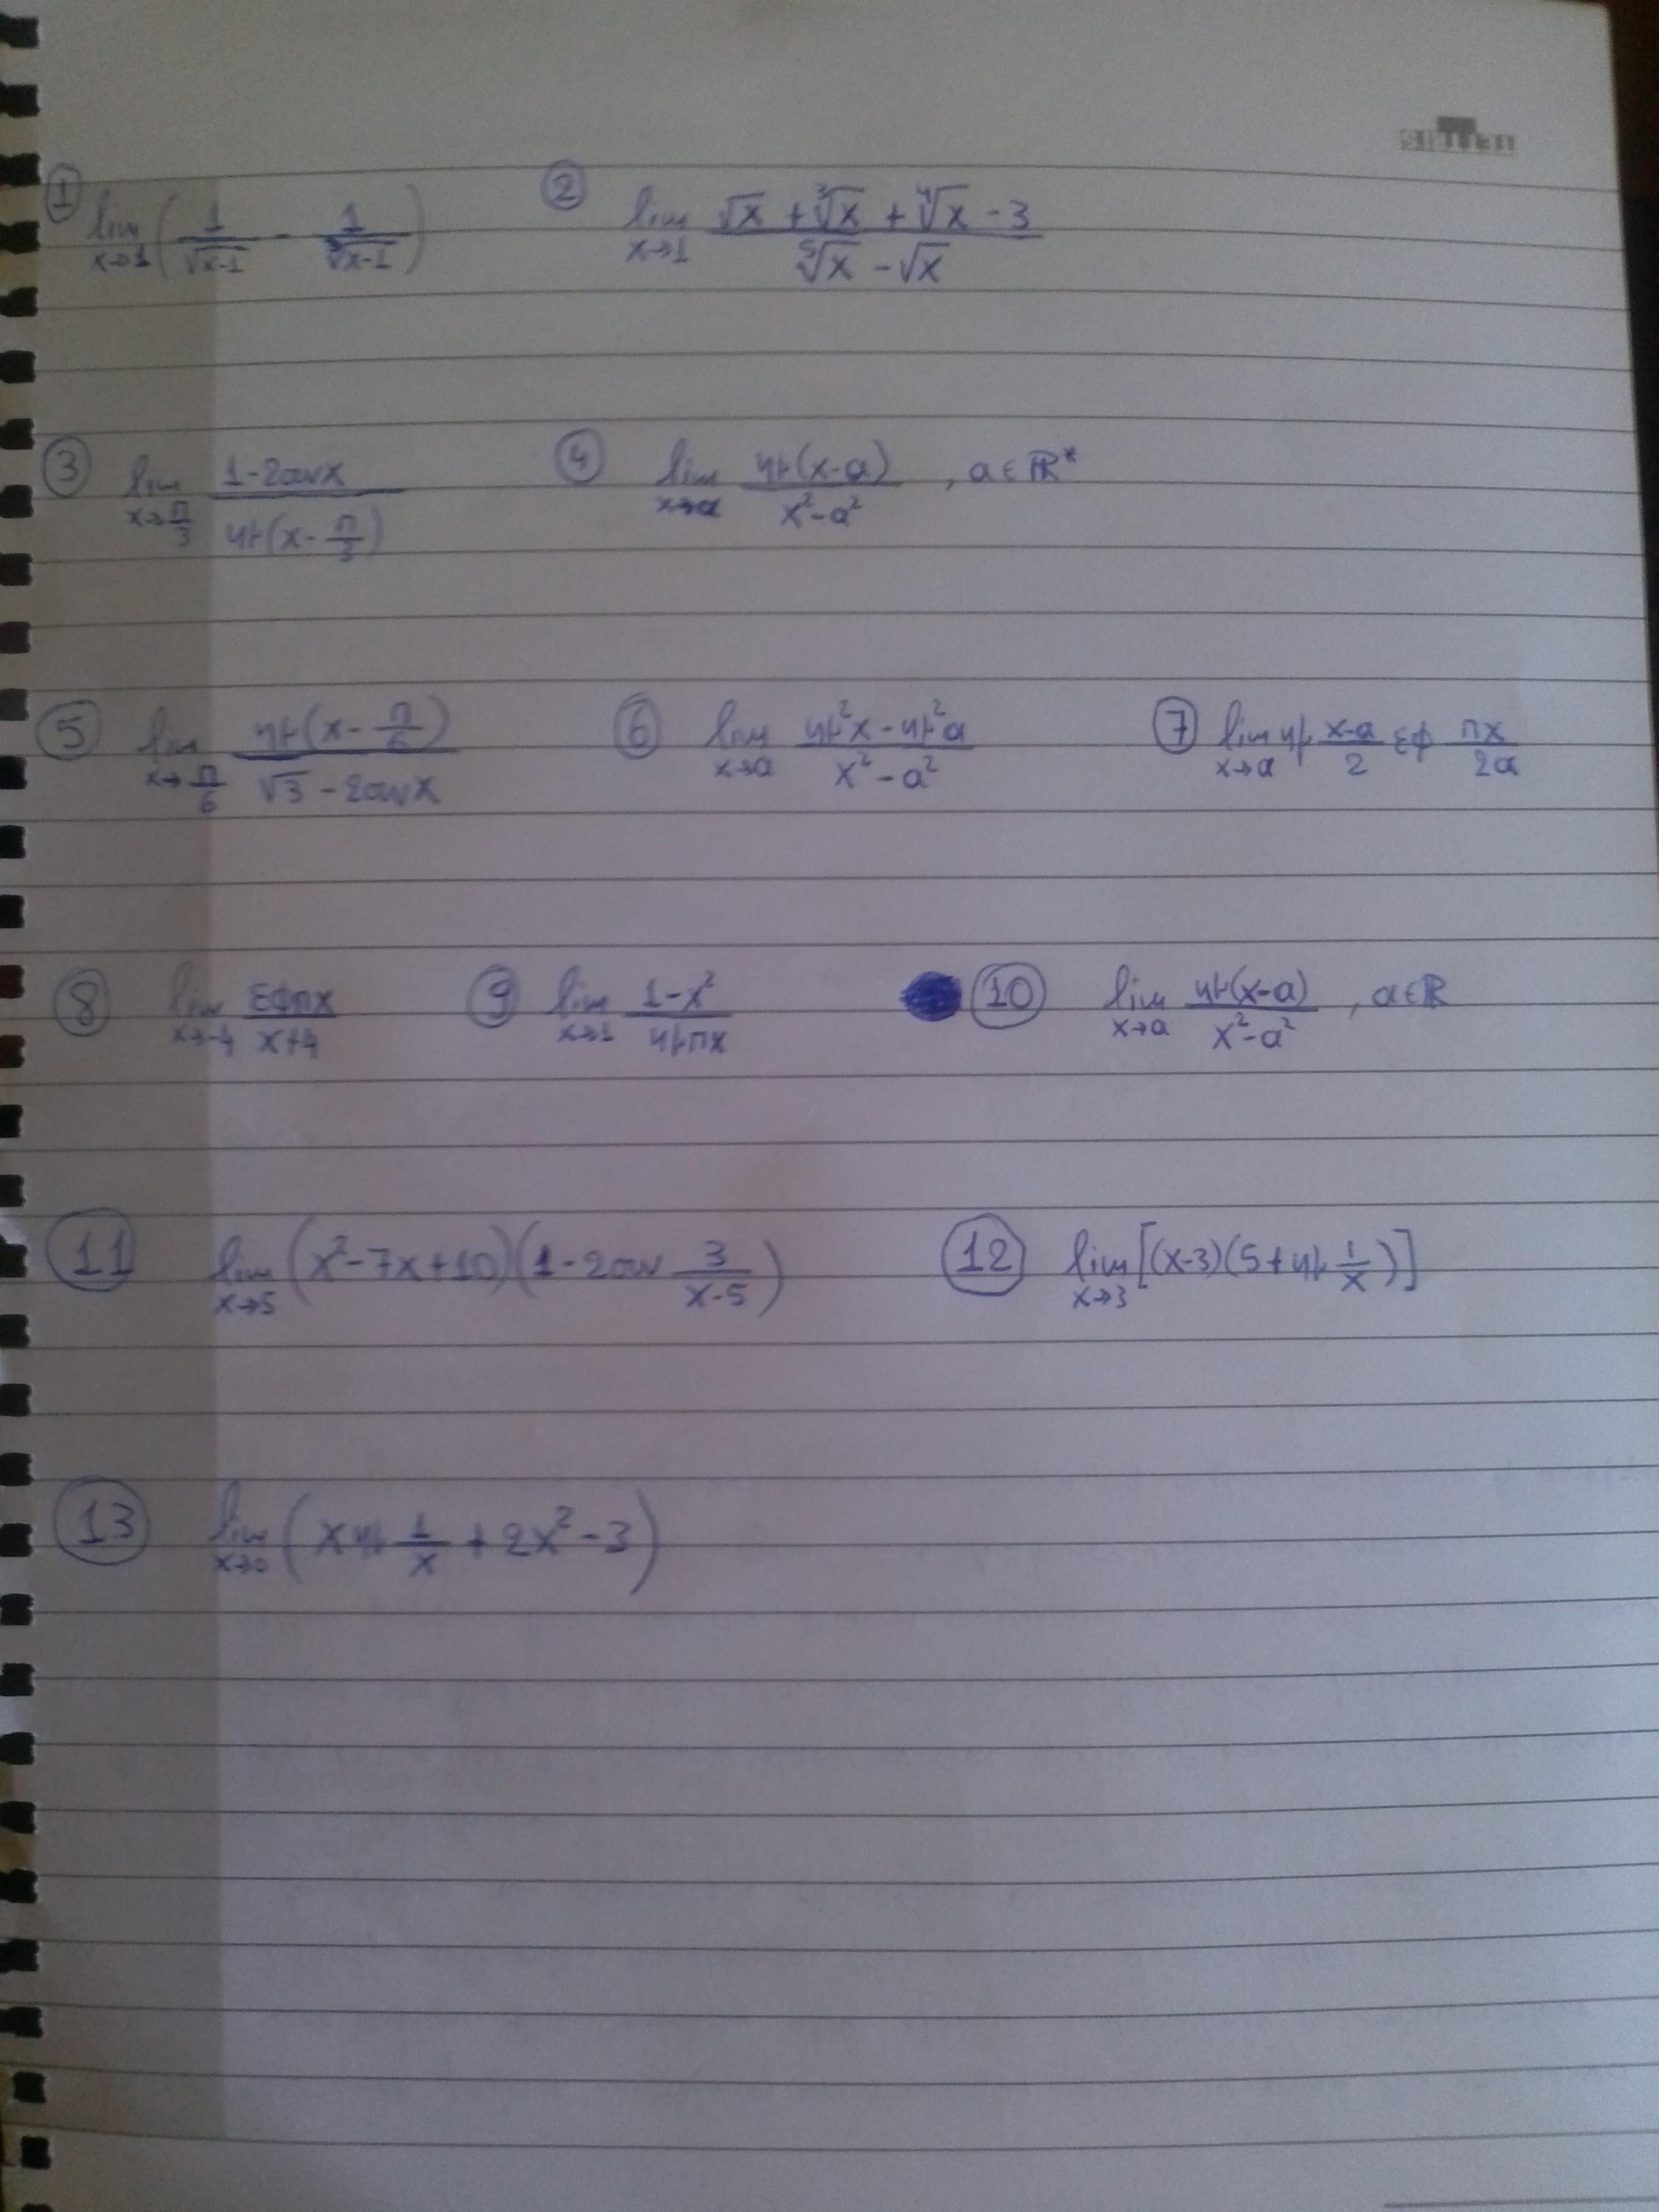 ① lim x→1 (1/√x-1 - 1/∛x-1) ② lim x→1 (√x + ∛x + ∜x - 3)/(⁵√x - √x)
③ lim x→π/3 (1-2συνx)/(ημ(x-π/3)) ④ lim x→α ημ(x-α)/(x²-α²), α∈ℝ*
⑤ lim x→π/6 ημ(x-π/6)/(√3-2συνx) ⑥ lim x→α (ημ²x-ημ²α)/(x²-α²) ⑦ lim x→α ημ (x-α)/2 εφ πx/2α
⑧ lim x→-4 εφπx/(x+4) ⑨ lim x→1 (1-x²)/ημπx ⑩ lim x→α ημ(x-α)/(x²-α²), α∈ℝ
⑪ lim x→5 (x²-7x+10)(1-2συν 3/(x-5)) ⑫ lim x→3 [(x-3)(5+ημ 1/x)]
⑬ lim x→0 (xημ 1/x + 2x²-3)